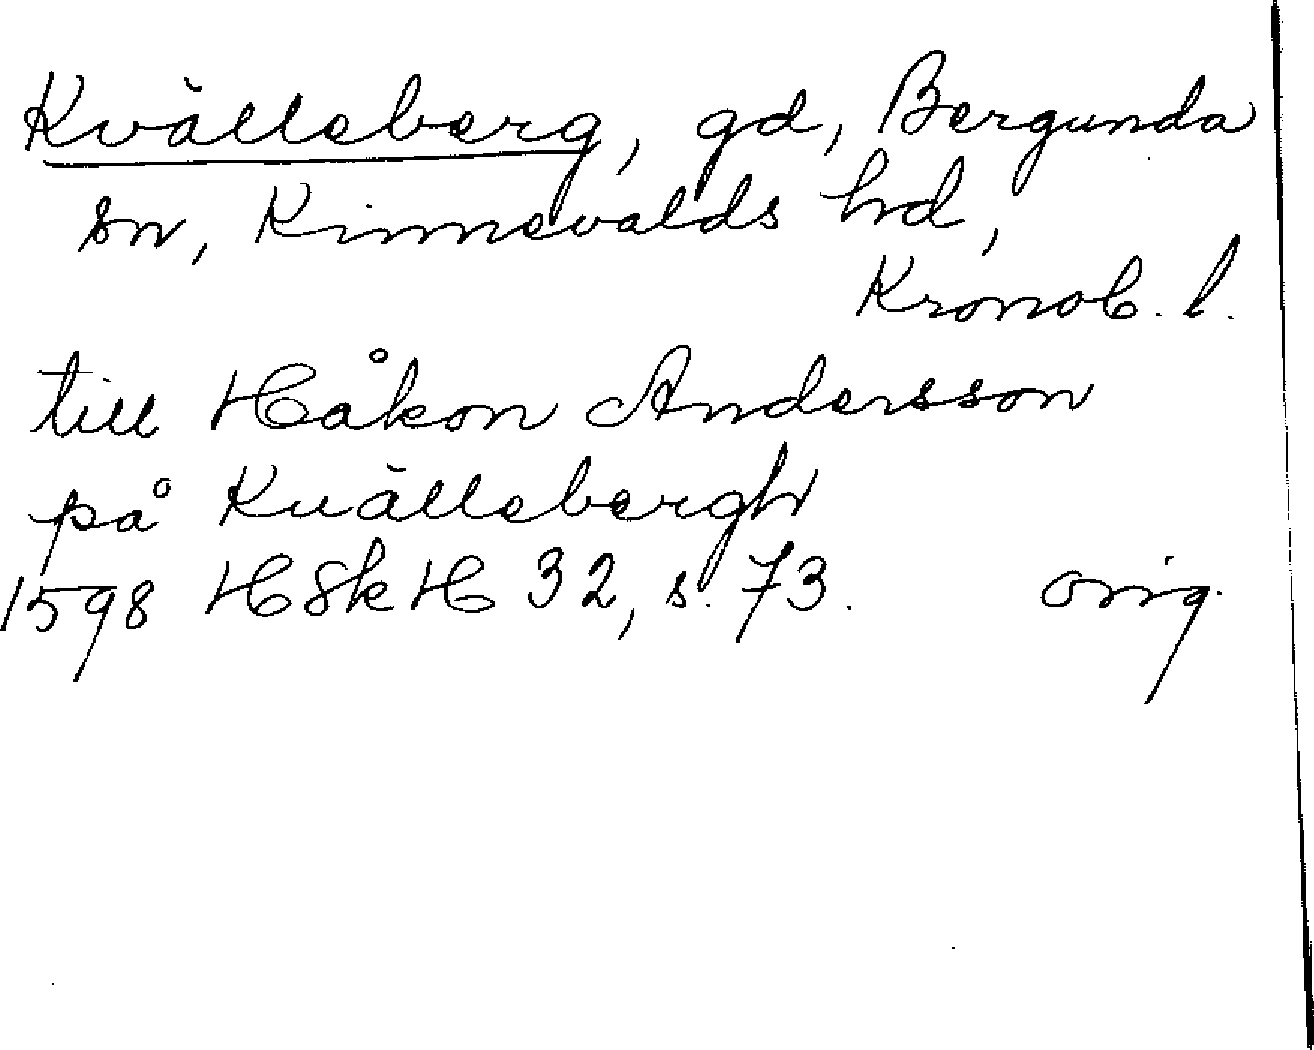 Kvälleberg, gd, Bergunda
sn, Kinnevalds hd,
Kronob. l.
till Håkon Andersson
på Kuällebergh
1598 HSkH 32, s. 73. orig.